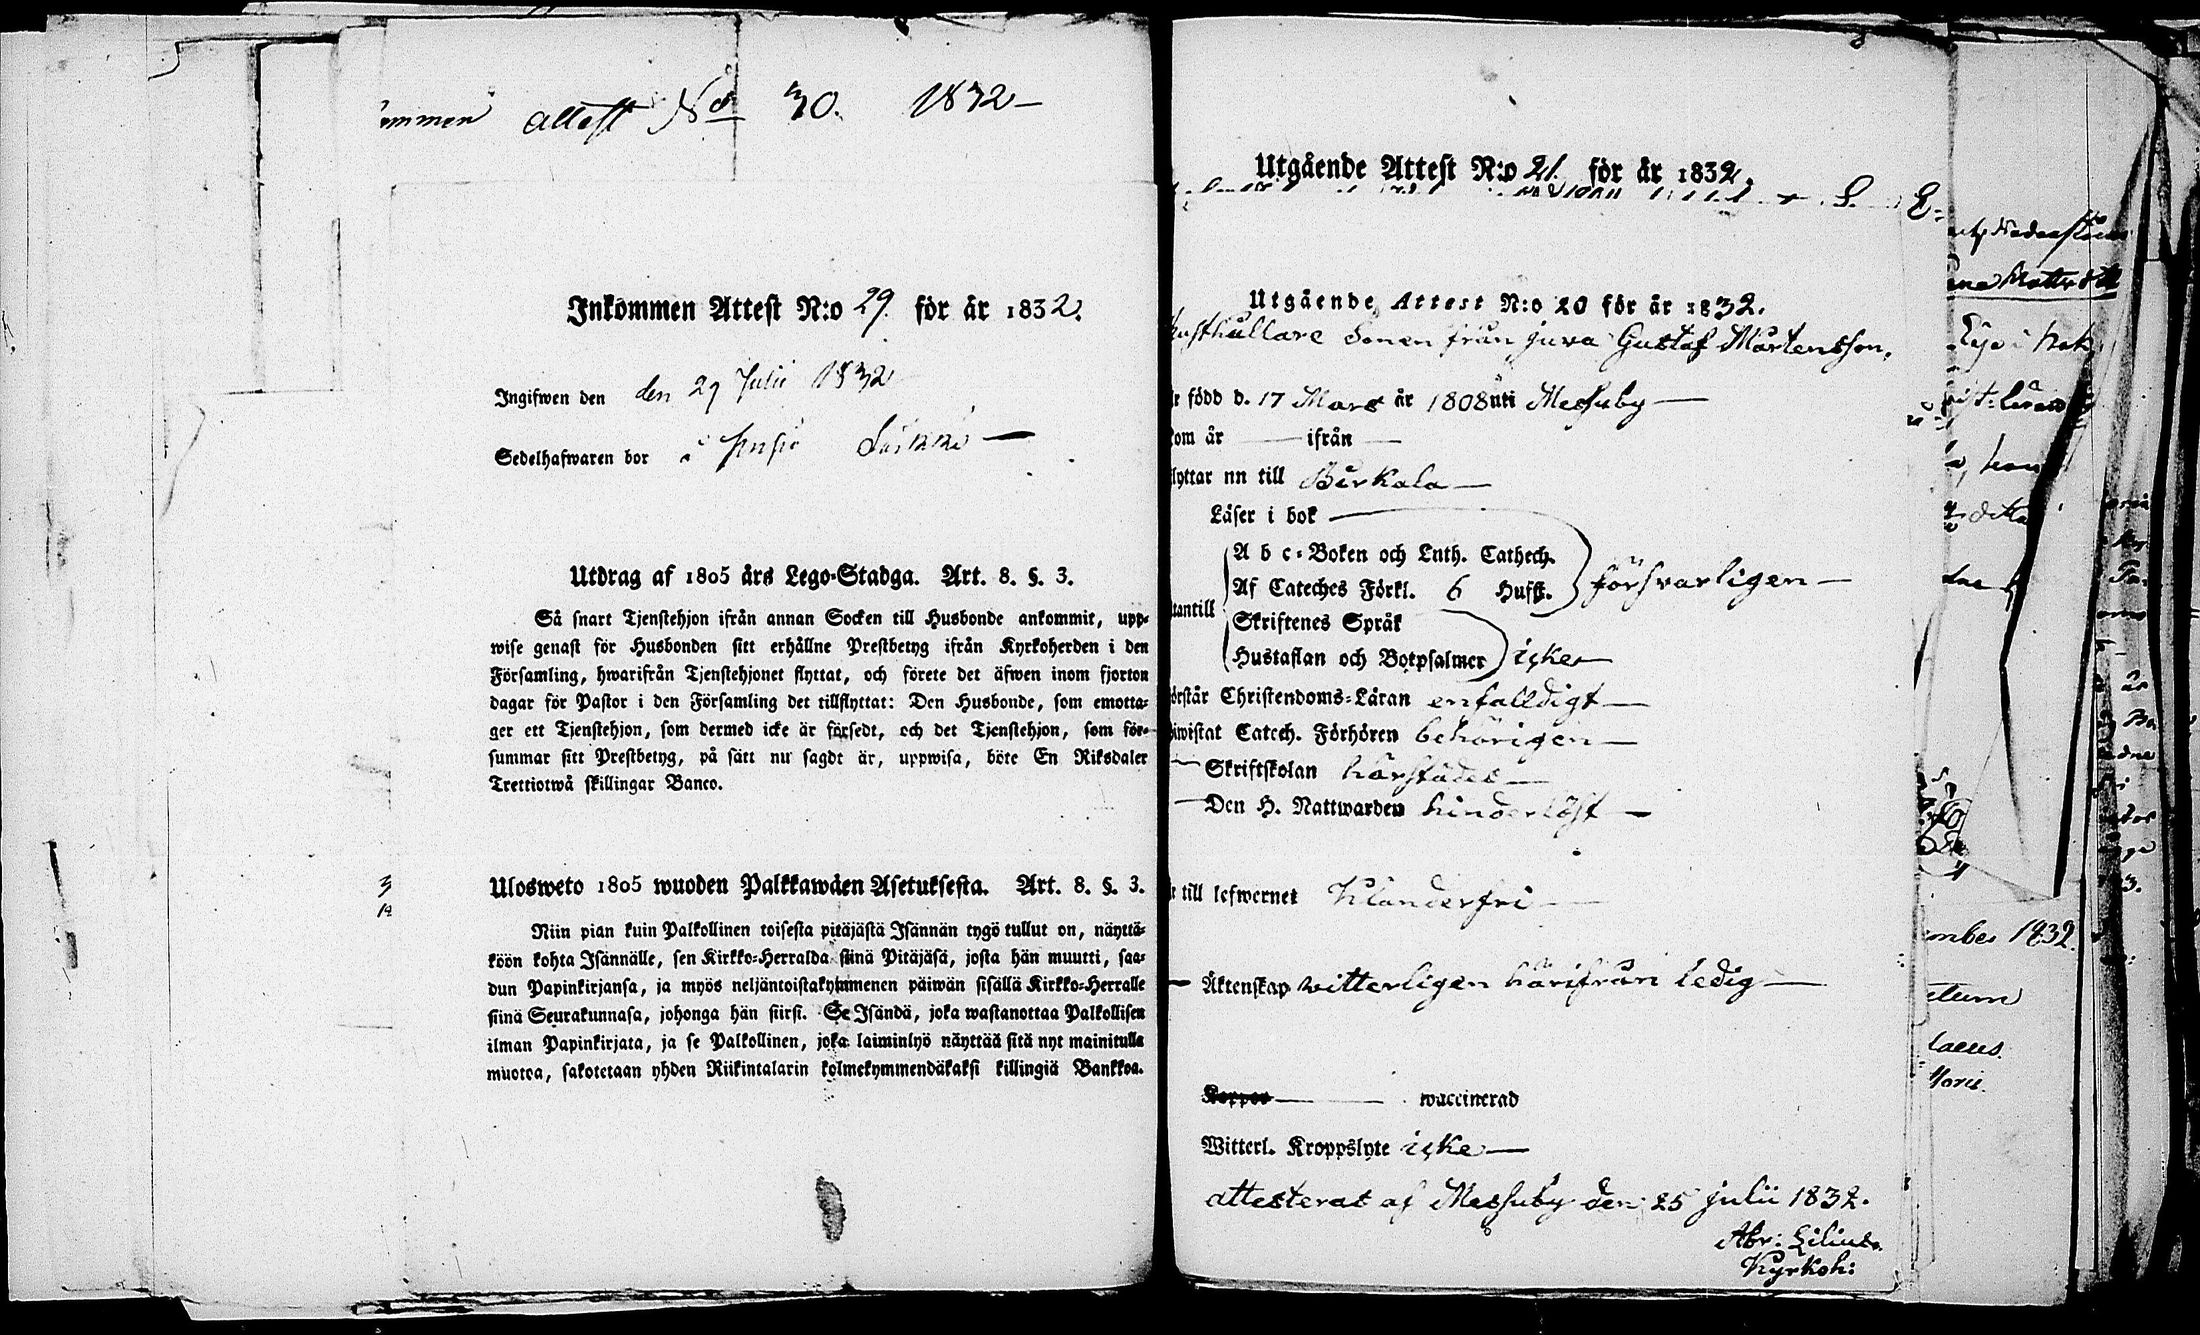 ommen attest No 30. 1832
Inkommen Attest N:o 29. för år 1832.
Ingifwen den den 29 Julii 1832
Sedelhafwaren bor i
Utdrag af 1805 års Lego-Stadga. Art. 8. §. 3.
Så snart Tjenstehjon ifrån annan Socken till Husbonde ankommit, upp-
wise genast för Husbonden sitt erhållne Prestbetyg ifrån Kyrkoherden i den
Församling, hwarifrån Tjenstehjonet flyttat, och förete det äfwen inom fjorton
dagar för Pastor i den Församling det tillflyttat: Den Husbonde, som emotta-
ger ett Tjenstehjon, som dermed icke är försedt, och det Tjenstehjon, som för-
summar sitt Prestbetyg, på sätt nu sagdt är, uppwisa, böte En Riksdaler
Trettiotwå skillingar Banco.
Ulosweto 1805 wuoden Palkkawäen Asetuksesta. Art. 8. §. 3.
Niin pian kuin Palkollinen toisesta pitäjästä Isännän tygö tullut on, näyttä-
köön kohta Isännälle, sen Kirkko-Herralda siinä Pitäjäsä, josta hän muutti, saa-
dun Papinkirjansa, ja myös neljäntoistakymmenen päiwän sisällä Kirkko-Herralle
siinä Seurakunnasa, johonga hän siirsi. Se Isändä, joka wastanottaa Palkollisen
ilman Papinkirjata, ja se Palkollinen, joka laiminlyö näyttää sitä nyt mainitulla
muotoa, sakotetaan yhden Riikintalarin kolmekymmendäkaksi killingiä Bankkoa.
Utgående Attest N:o 21. för år 1832.
Utgående Attest N:o 20 för år 1832.
usthållare Sonen från juva Gustaf Mårtensson,
r född d. 17 Mars år 1808 uti Messuby
om år ifrån
lyttar nn till Birkala
Läser i bok
A b c-Boken och Luth. Cathech.
Af Cateches Förkl. 6 Hufst. försvarligen
tantill
Skriftenes Språk
Hustaflan och Botpsalmer icke
örstår Christendoms-Läran enfalldigt
iwistat Catech. Förhören behörigen
Skriftskolan härstädes
Den H. Nattwarden hinderlöst
till lefwernet Klanderfri
Äktenskap witterligen härifrån ledig
Koppor waccinerad
Witterl. Kroppslyte icke
attesterat af Messuby den 25 julii 1832.
Abr: Lilius.
Kyrkoh:
mber 1832.